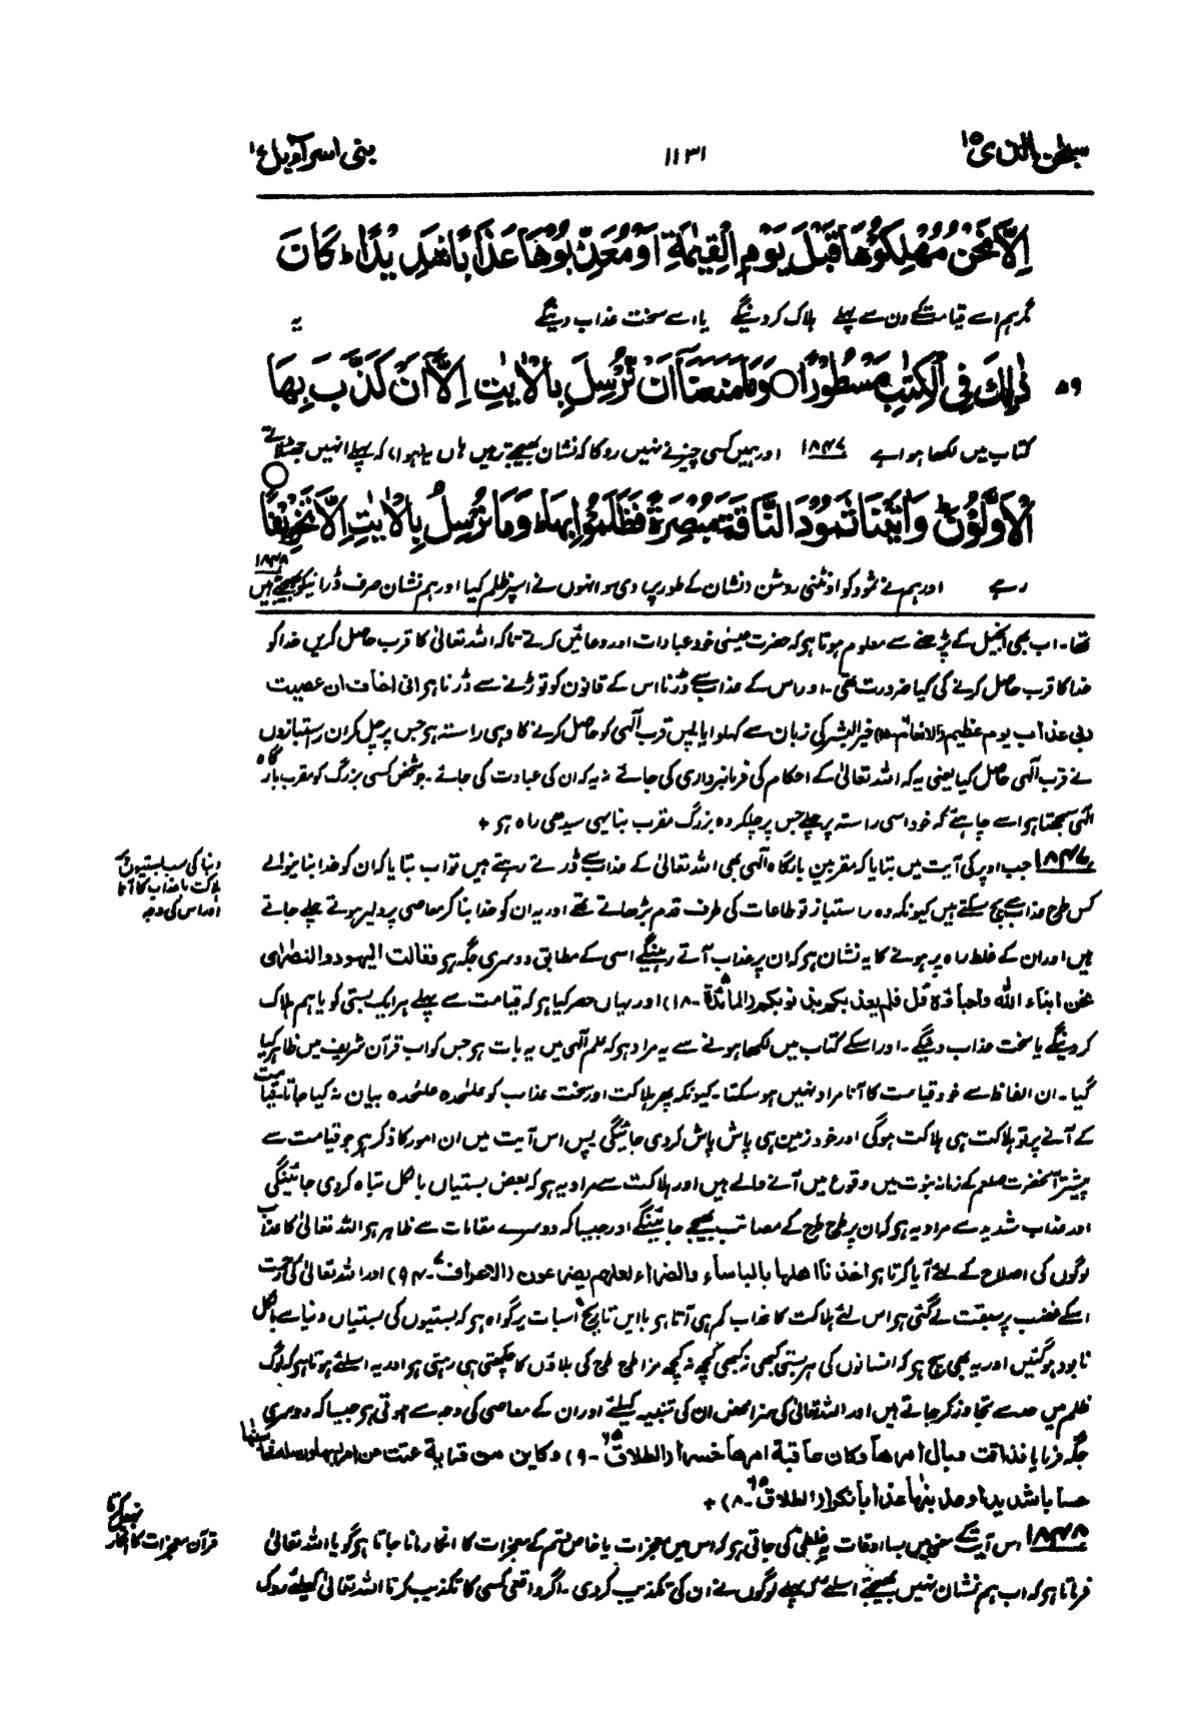 سبحٰن الذی ۱۵
۱۱۳۱
بنی اسرآءیل ۱۷
اِلَّا نَحْنُ مُهْلِكُوْهَا قَبْلَ يَوْمِ الْقِيٰمَةِ اَوْ مُعَذِّبُوْهَا عَذَابًا شَدِيْدًا ؕ كَانَ
مگر ہم اسے قیامت کے دن سے پہلے ہلاک کر دینگے یا اسے سخت عذاب دینگے یہ
۵۹
ذٰلِكَ فِى الْكِتٰبِ مَسْطُوْرًا ○ وَمَا مَنَعَنَآ اَنْ نُّرْسِلَ بِالْاٰيٰتِ اِلَّآ اَنْ كَذَّبَ بِهَا
کتاب میں لکھا ہوا ہے ۱۸۴۷ اور ہمیں کسی چیز نے نہیں روکا کہ نشان بھیجتے رہیں ہاں یہ (ہوا) کہ پہلے انہیں جھٹلاتے
الْاَوَّلُوْنَ ؕ وَاٰتَيْنَا ثَمُوْدَ النَّاقَةَ مُبْصِرَةً فَظَلَمُوْا بِهَا ؕ وَمَا نُرْسِلُ بِالْاٰيٰتِ اِلَّا تَخْوِيْفًا ○
رہے اور ہم نے ثمود کو اونٹنی روشن (نشان کے طور پر) دی سو انہوں نے اسپر ظلم کیا اور ہم نشان صرف ڈرانیکو بھیجتے ہیں ۱۸۴۸
تھا۔ اب بھی انجیل کے پڑھنے سے معلوم ہوتا ہو کہ حضرت عیسیٰ خود عبادات اور دعائیں کرتے تاکہ اللہ تعالیٰ کا قرب حاصل کریں خدا کو
خدا کا قرب حاصل کرنے کی کیا ضرورت تھی۔ اور اس کے عذاب سے ڈرنا اس کے قانون کو توڑنے سے ڈرنا ہو انی اخاف ان عصیت
ربی عذاب یوم عظیم (الانعام ۱۵) خیر البشر کی زبان سے کہلوایا پس قرب الٰہی کو حاصل کرنے کا وہی راستہ ہو جس پر چل کر ان راستبازوں
نے قرب الٰہی حاصل کیا یعنی یہ کہ اللہ تعالیٰ کے احکام کی فرمانبرداری کی جائے نہ یہ کہ ان کی عبادت کی جائے۔ جو شخص کسی بزرگ کو مقرب بارگاہ
الٰہی سمجھتا ہو اسے چاہیئے کہ خود اسی راستہ پر چلے جس پر چلکر وہ بزرگ مقرب بنا یہی سیدھی راہ ہو +
دنیا کی سب بستیوں پر
ہلاکت یا عذاب کا آنا
اور اس کی وجہ
۱۸۴۷ جب اوپر کی آیت میں بتایا کہ مقربین بارگاہ الٰہی بھی اللہ تعالیٰ کے عذاب سے ڈرتے رہتے ہیں تو اب بتایا کہ ان کو خدا بنانیوالے
کس طرح عذاب سے بچ سکتے ہیں کیونکہ وہ راستباز تو طاعات کی طرف قدم بڑھاتے تھے اور یہ ان کو خدا بنا کر معاصی پر دلیر ہوتے چلے جاتے
ہیں اور ان کے غلط راہ پر ہونے کا یہ نشان ہو کہ ان پر عذاب آتے رہینگے اسی کے مطابق دوسری جگہ ہو وقالت الیہود والنصٰرٰی
نحن ابناء الله واحباؤہ قل فلم یعذبکم بذنوبکم (المائدۃ ۵-۱۸) اور یہاں حصر کیا ہو کہ قیامت سے پہلے ہر ایک بستی کو یا ہم ہلاک
کردینگے یا سخت عذاب دینگے۔ اور اسکے کتاب میں لکھا ہونے سے یہ مراد ہو کہ علم الٰہی میں یہ بات ہو جس کو اب قرآن شریف میں ظاہر کیا
گیا۔ ان الفاظ سے خود قیامت کا آنا مراد نہیں ہو سکتا۔ کیونکہ پھر ہلاکت اور سخت عذاب کو علیٰحدہ علیٰحدہ بیان نہ کیا جاتا۔ قیامت
کے آنے پر تو ہلاکت ہی ہلاکت ہوگی اور خود زمین ہی پاش پاش کردی جائیگی پس اس آیت میں ان امور کا ذکر ہو جو قیامت سے
پیشتر آنحضرت صلعم کے زمانہ نبوت میں وقوع میں آنے والے ہیں اور ہلاکت سے مراد یہ ہو کہ بعض بستیاں بالکل تباہ کردی جائینگی
اور عذاب شدید سے مراد یہ ہو کہ ان پر طرح طرح کے مصائب بھیجے جائینگے اور جیسا کہ دوسرے مقامات سے ظاہر ہو اللہ تعالیٰ کا عذاب
لوگوں کی اصلاح کے لئے آیا کرتا ہو اخذنا اھلھا بالباساء والضراء لعلھم یضرعون (الاعراف ۷-۹۴) اور اللہ تعالیٰ کی رحمت
اسکے غضب پر سبقت لے گئی ہو اس لئے ہلاکت کا عذاب کم ہی آتا ہو بااین تاریخ اسبات پر گواہ ہو کہ بستیوں کی بستیاں دنیا سے بالکل
نابود ہوگئیں اور یہ بھی سچ ہو کہ انسانوں کی ہر بستی کبھی نہ کبھی کچھ نہ کچھ مزا طرح طرح کی بلاؤں کا چکھتی ہی رہتی ہو اور یہ اسلئے ہوتا ہو کہ لوگ
ظلم میں حد سے تجاوز کر جاتے ہیں اور اللہ تعالیٰ کی سزا محض ان کی تنبیہ کیلئے اور ان کے معاصی کی وجہ سے ہوتی ہو جیسا کہ دوسری
جگہ فرمایا فذاقت وبال امرھا وکان عاقبۃ امرھا خسرا (الطلاق ۶۵-۹) وکاین من قریۃ عتت عن امر ربھا ورسلہ فحاسبنٰھا
حسابا شدیدا وعذبنٰھا عذابا نکرا (الطلاق ۶۵-۸) +
قرآن معجزات کا انکار
نہیں کرتا
۱۸۴۸ اس آیت کے معنی میں بسا اوقات یہ غلطی کی جاتی ہو کہ اس میں معجزات یا خاص قسم کے معجزات کا انکار مانا جاتا ہو گویا اللہ تعالیٰ
فرماتا ہو کہ اب ہم نشان نہیں بھیجتے اسلئے کہ پہلے لوگوں نے ان کی تکذیب کردی۔ اگر واقعی کسی کا تکذیب کرنا اللہ تعالیٰ کیلئے روک